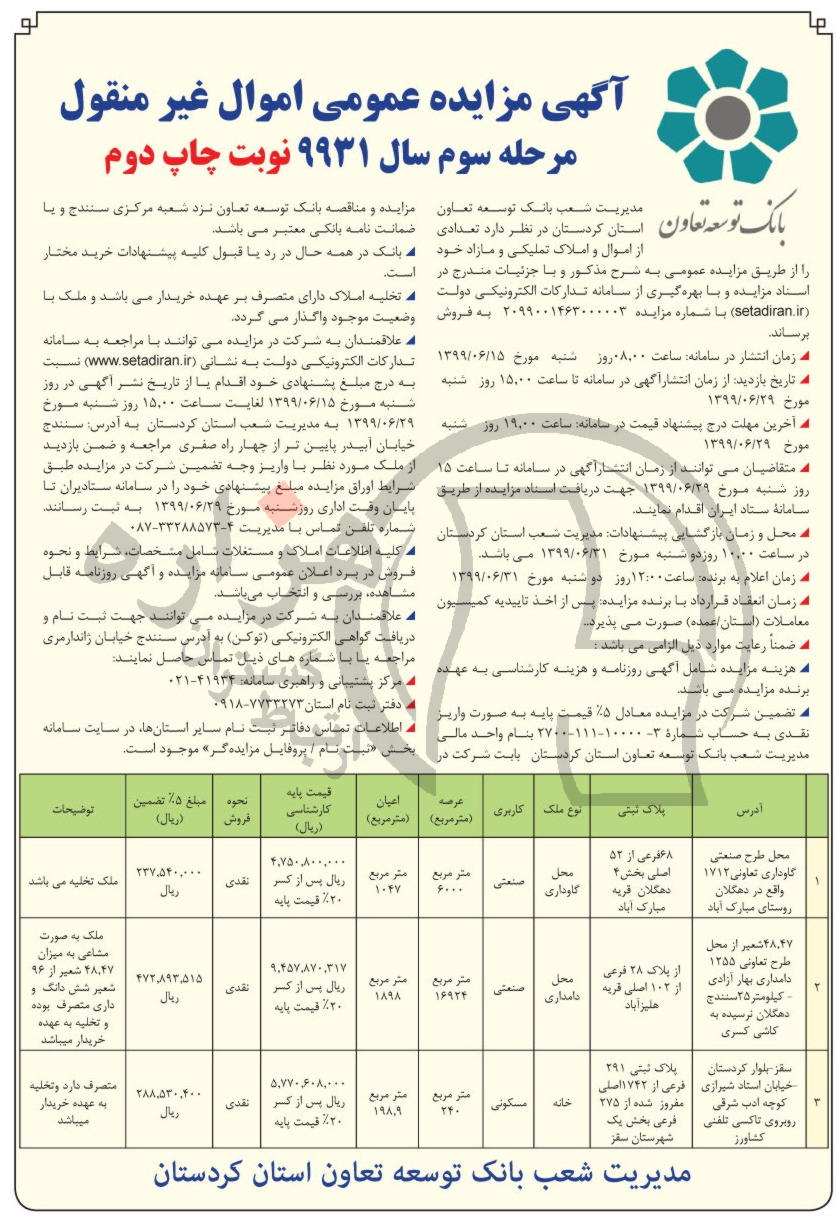 آگهی مزایده عمومی اموال غیر منقول
مرحله سوم سال ۹۹۳۱ نوبت چاپ دوم
بانک توسعه تعاون
مدیریت شعب بانک توسعه تعاون
استان کردستان در نظر دارد تعدادی
از اموال و املاک تملیکی و مازاد خود
را از طریق مزایده عمومی به شرح مذکور و با جزئیات مندرج در
اسناد مزایده و با بهره‌گیری از سامانه تدارکات الکترونیکی دولت
(setadiran.ir) با شماره مزایده ۲۰۹۹۰۰۱۴۶۳۰۰۰۰۰۳ به فروش
برساند.
زمان انتشار در سامانه: ساعت ۰۸,۰۰روز شنبه مورخ ۱۳۹۹/۰۶/۱۵
تاریخ بازدید: از زمان انتشارآگهی در سامانه تا ساعت ۱۵,۰۰ روز شنبه
مورخ ۱۳۹۹/۰۶/۲۹
آخرین مهلت درج پیشنهاد قیمت در سامانه: ساعت ۱۹,۰۰ روز شنبه
مورخ ۱۳۹۹/۰۶/۲۹
متقاضیان می توانند از زمان انتشارآگهی در سامانه تا ساعت ۱۵
روز شنبه مورخ ۱۳۹۹/۰۶/۲۹ جهت دریافت اسناد مزایده از طریق
سامانهٔ ستاد ایران اقدام نمایند.
محل و زمان بازگشایی پیشنهادات: مدیریت شعب استان کردستان
در ساعت ۱۰,۰۰ روزدو شنبه مورخ ۱۳۹۹/۰۶/۳۱ می باشد.
زمان اعلام به برنده: ساعت۱۲:۰۰روز دو شنبه مورخ ۱۳۹۹/۰۶/۳۱
زمان انعقاد قرارداد با برنده مزایده: پس از اخذ تاییدیه کمیسیون
معاملات (استان/عمده) صورت می پذیرد..
ضمناً رعایت موارد ذیل الزامی می باشد :
هزینه مزایده شامل آگهی روزنامه و هزینه کارشناسی به عهده
برنده مزایده می باشد.
تضمین شرکت در مزایده معادل ۵٪ قیمت پایه به صورت واریز
نقدی به حساب شمارهٔ ۳- ۱۰۰۰۰-۱۱۱-۲۷۰۰ بنام واحد مالی
مدیریت شعب بانک توسعه تعاون استان کردستان بابت شرکت در
مزایده و مناقصه بانک توسعه تعاون نزد شعبه مرکزی سنندج و یا
ضمانت نامه بانکی معتبر می باشد.
بانک در همه حال در رد یا قبول کلیه پیشنهادات خرید مختار
است.
تخلیه املاک دارای متصرف بر عهده خریدار می باشد و ملک با
وضعیت موجود واگذار می گردد.
علاقمندان به شرکت در مزایده می توانند با مراجعه به سامانه
تدارکات الکترونیکی دولت به نشانی (www.setadiran.ir) نسبت
به درج مبلغ پشنهادی خود اقدام یا از تاریخ نشر آگهی در روز
شنبه مورخ ۱۳۹۹/۰۶/۱۵ لغایت ساعت ۱۵,۰۰ روز شنبه مورخ
۱۳۹۹/۰۶/۲۹ به مدیریت شعب استان کردستان به آدرس: سنندج
خیابان آبیدر پایین تر از چهار راه صفری مراجعه و ضمن بازدید
از ملک مورد نظر با واریز وجه تضمین شرکت در مزایده طبق
شرایط اوراق مزایده مبلغ پیشنهادی خود را در سامانه ستادیران تا
پایان وقت اداری روزشنبه مورخ ۱۳۹۹/۰۶/۲۹ به ثبت رسانند.
شماره تلفن تماس با مدیریت ۴-۳۳۲۸۸۵۷۳-۰۸۷
کلیه اطلاعات املاک و مستغلات شامل مشخصات، شرایط و نحوه
فروش در برد اعلان عمومی سامانه مزایده و آگهی روزنامه قابل
مشاهده، بررسی و انتخاب می‌باشد.
علاقمندان به شرکت در مزایده می توانند جهت ثبت نام و
دریافت گواهی الکترونیکی (توکن) به آدرس سنندج خیابان ژاندارمری
مراجعه یا با شماره های ذیل تماس حاصل نمایند:
مرکز پشتیبانی و راهبری سامانه: ۴۱۹۳۴-۰۲۱
دفتر ثبت نام استان۷۷۳۳۲۷۳-۰۹۱۸
اطلاعات تماس دفاتر ثبت نام سایر استان‌ها، در سایت سامانه
بخش «ثبت نام / پروفایل مزایده‌گر» موجود است.
آدرس | پلاک ثبتی | نوع ملک | کاربری | عرصه (مترمربع) | اعیان (مترمربع) | قیمت پایه کارشناسی (ریال) | نحوه فروش | مبلغ ۵٪ تضمین (ریال) | توضیحات
۱ | محل طرح صنعتی گاوداری تعاونی۱۷۱۲ واقع در دهگلان روستای مبارک آباد | ۶۸فرعی از ۵۲ اصلی بخش۴ دهگلان قریه مبارک آباد | محل گاوداری | صنعتی | متر مربع ۶۰۰۰ | متر مربع ۱۰۴۷ | ۴,۷۵۰,۸۰۰,۰۰۰ ریال پس از کسر ۲۰٪ قیمت پایه | نقدی | ۲۳۷,۵۴۰,۰۰۰ ریال | ملک تخلیه می باشد
۲ | ۴۸,۴۷شعیر از محل طرح تعاونی ۱۲۵۵ دامداری بهار آزادی - کیلومتر۲۵سنندج دهگلان نرسیده به کاشی کسری | از پلاک ۲۸ فرعی از ۱۰۲ اصلی قریه هلیزآباد | محل دامداری | صنعتی | متر مربع ۱۶۹۲۴ | متر مربع ۱۸۹۸ | ۹,۴۵۷,۸۷۰,۳۱۷ ریال پس از کسر ۲۰٪ قیمت پایه | نقدی | ۴۷۲,۸۹۳,۵۱۵ ریال | ملک به صورت مشاعی به میزان ۴۸,۴۷ شعیر از ۹۶ شعیر شش دانگ و داری متصرف بوده و تخلیه به عهده خریدار میباشد
۳ | سقز-بلوار کردستان -خیابان استاد شیرازی کوچه ادب شرقی روبروی تاکسی تلفنی کشاورز | پلاک ثبتی ۲۹۱ فرعی از ۱۷۴۲اصلی مفروز شده از ۲۷۵ فرعی بخش یک شهرستان سقز | خانه | مسکونی | متر مربع ۲۴۰ | متر مربع ۱۹۸,۹ | ۵,۷۷۰,۶۰۸,۰۰۰ ریال پس از کسر ۲۰٪ قیمت پایه | نقدی | ۲۸۸,۵۳۰,۴۰۰ ریال | متصرف دارد وتخلیه به عهده خریدار میباشد
مدیریت شعب بانک توسعه تعاون استان کردستان